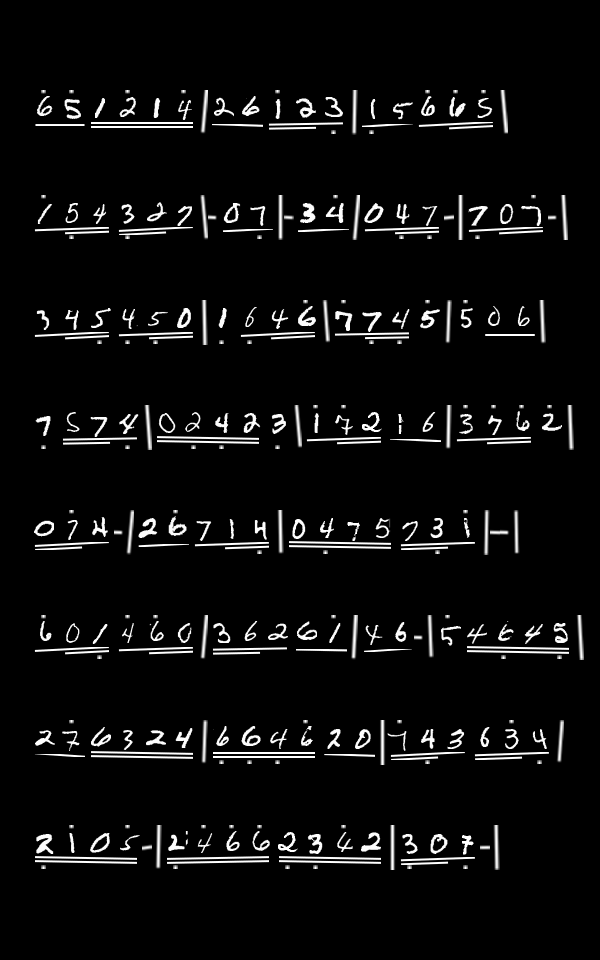 651214|26123|15665|
154327|-07|-34|047-|707-|
345450|1646|7745|506|
7574|02424|17216|3762|
074-|26714|0475731|-|
601460|36261|46-|54645|
276324|664620|743634|
2105-|24662342|307-|